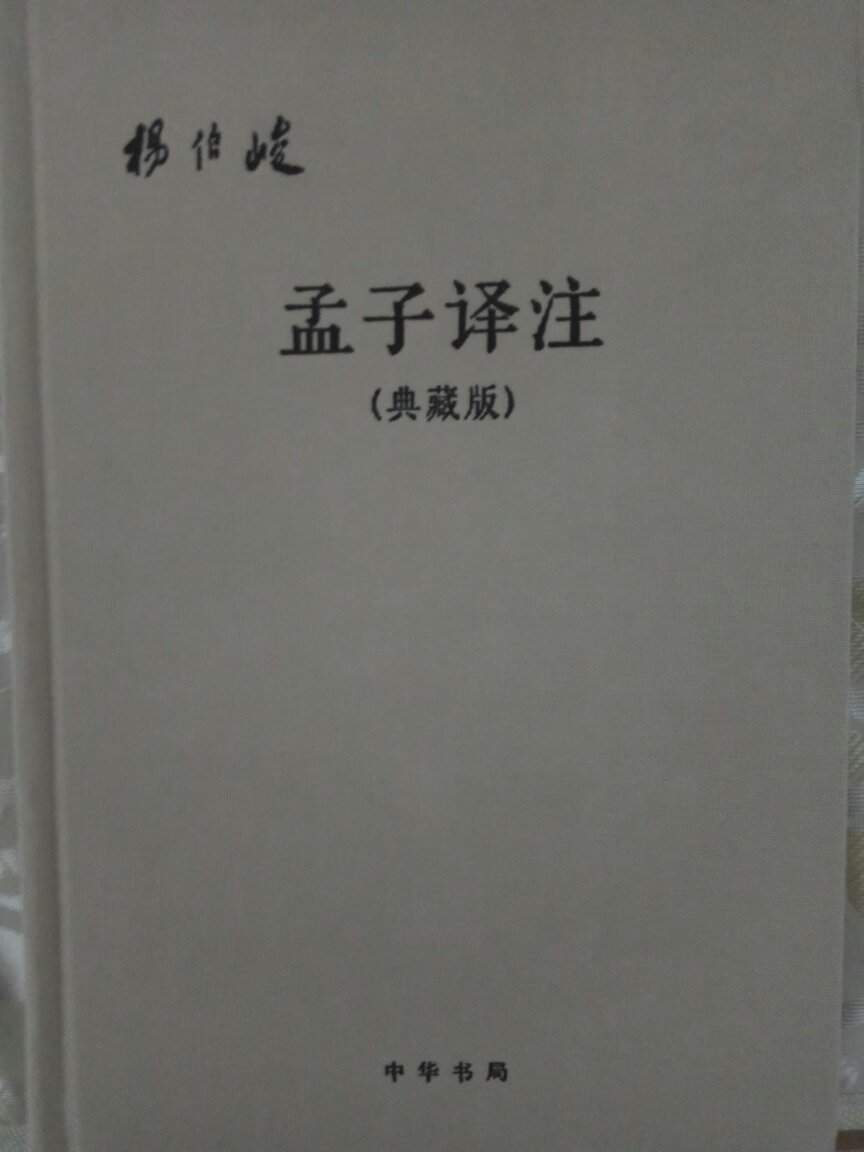 楊伯峻
孟子译注
(典藏版)
中华书局